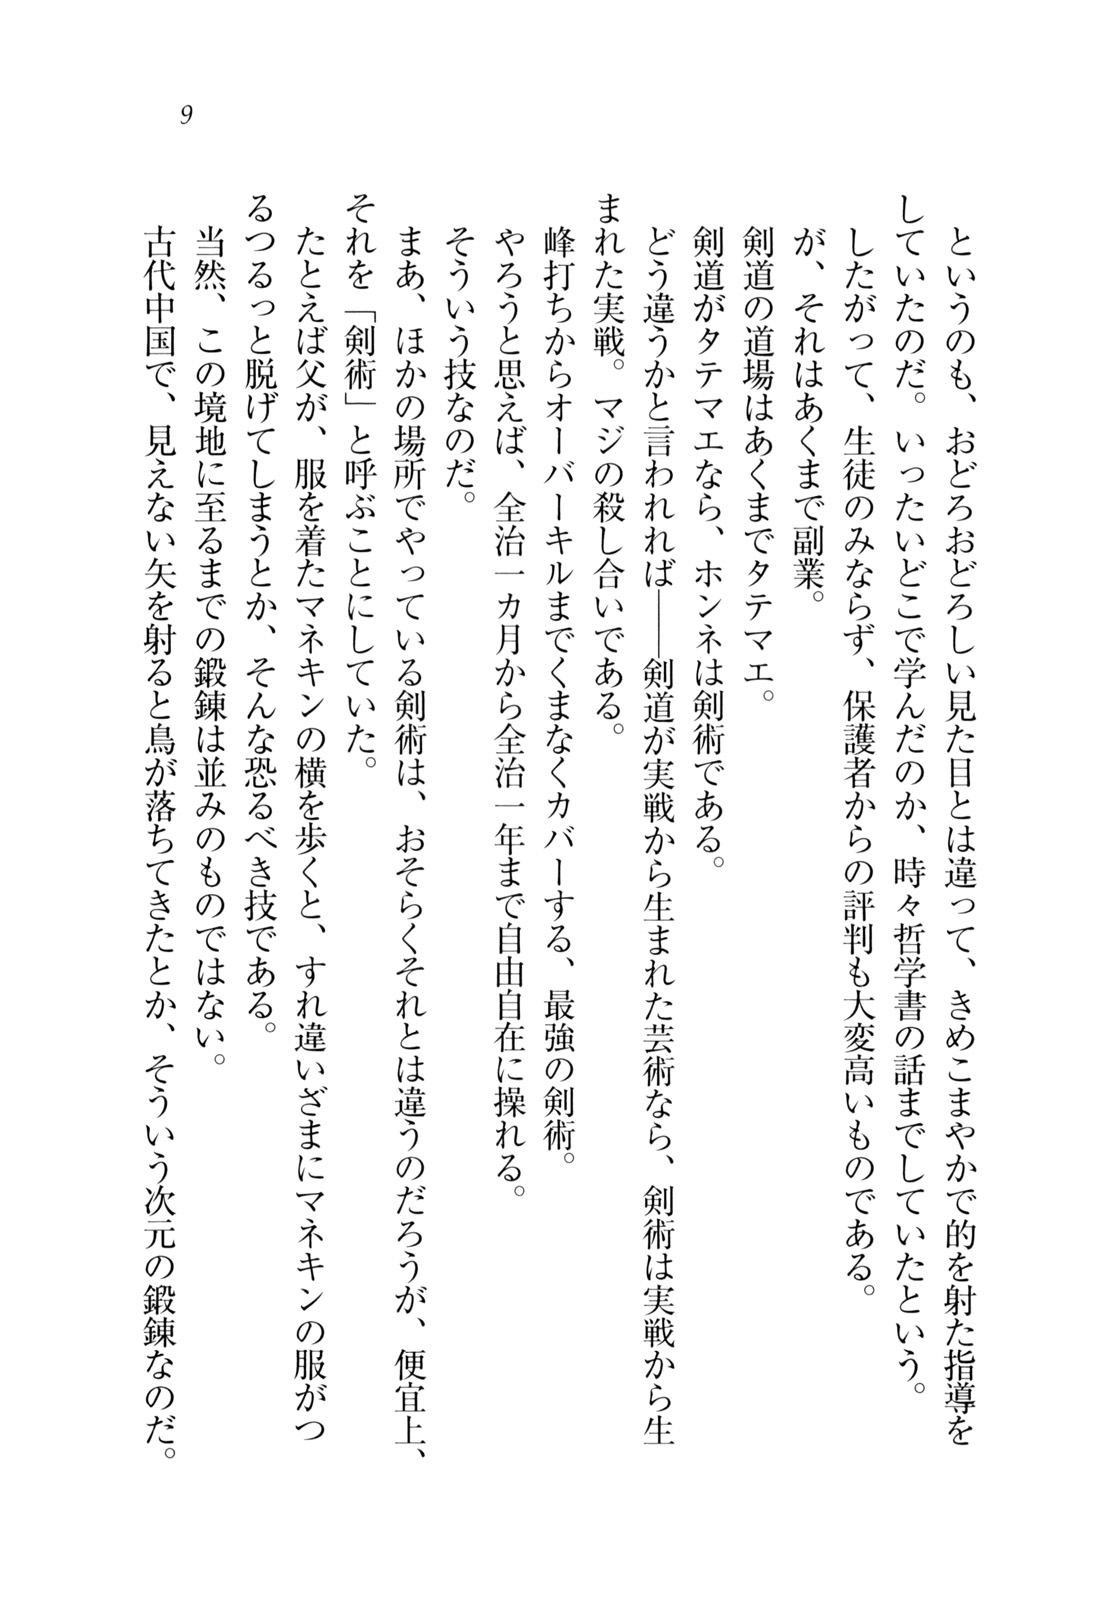 9
というのも、おどろおどろしい見た目とは違って、きめこまやかで的を射た指導を
していたのだ。いったいどこで学んだのか、時々哲学書の話までしていたという。
したがって、生徒のみならず、保護者からの評判も大変高いものである。
が、それはあくまで副業。
剣道の道場はあくまでタテマエ。
剣道がタテマエなら、ホンネは剣術である。
どう違うかと言われれば――剣道が実戦から生まれた芸術なら、剣術は実戦から生
まれた実戦。マジの殺し合いである。
峰打ちからオーバーキルまでくまなくカバーする、最強の剣術。
やろうと思えば、全治一カ月から全治一年まで自由自在に操れる。
そういう技なのだ。
まあ、ほかの場所でやっている剣術は、おそらくそれとは違うのだろうが、便宜上、
それを「剣術」と呼ぶことにしていた。
たとえば父が、服を着たマネキンの横を歩くと、すれ違いざまにマネキンの服がつ
るつるっと脱げてしまうとか、そんな恐るべき技である。
当然、この境地に至るまでの鍛錬は並みのものではない。
古代中国で、見えない矢を射ると鳥が落ちてきたとか、そういう次元の鍛錬なのだ。